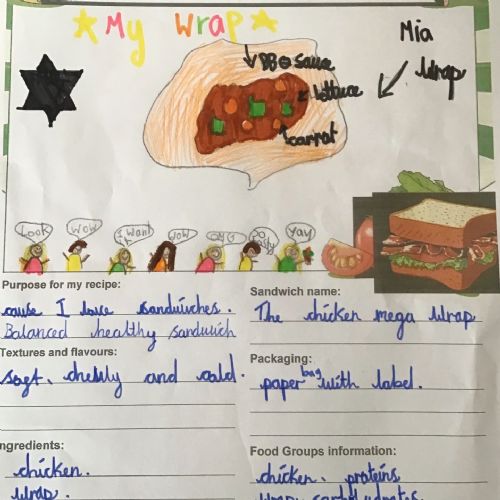 My Wrap
Mia
Wrap
BBQ sauce
lettuce
carrot
Look
Wow
I want it
Wow
OMG
So tasty
Yay
Purpose for my recipe:
cause I love sandwiches.
Balanced healthy sandwich
Textures and flavours:
soft, chewy and cold.
ngredients:
chicken.
wrap.
Sandwich name:
The chicken mega wrap
Packaging:
paper bag with label.
Food Groups information:
chicken. proteins
wrap carbohydrates.